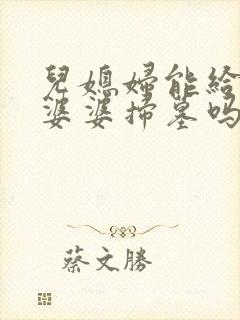 兒媳婦能給
婆婆掃墓吗
蔡文勝